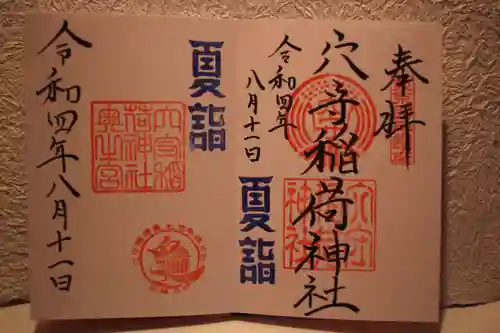 奉拝
穴守稲荷神社
令和四年
八月十一日
夏詣
夏詣
穴守稲荷神社奥之宮
令和四年八月十一日